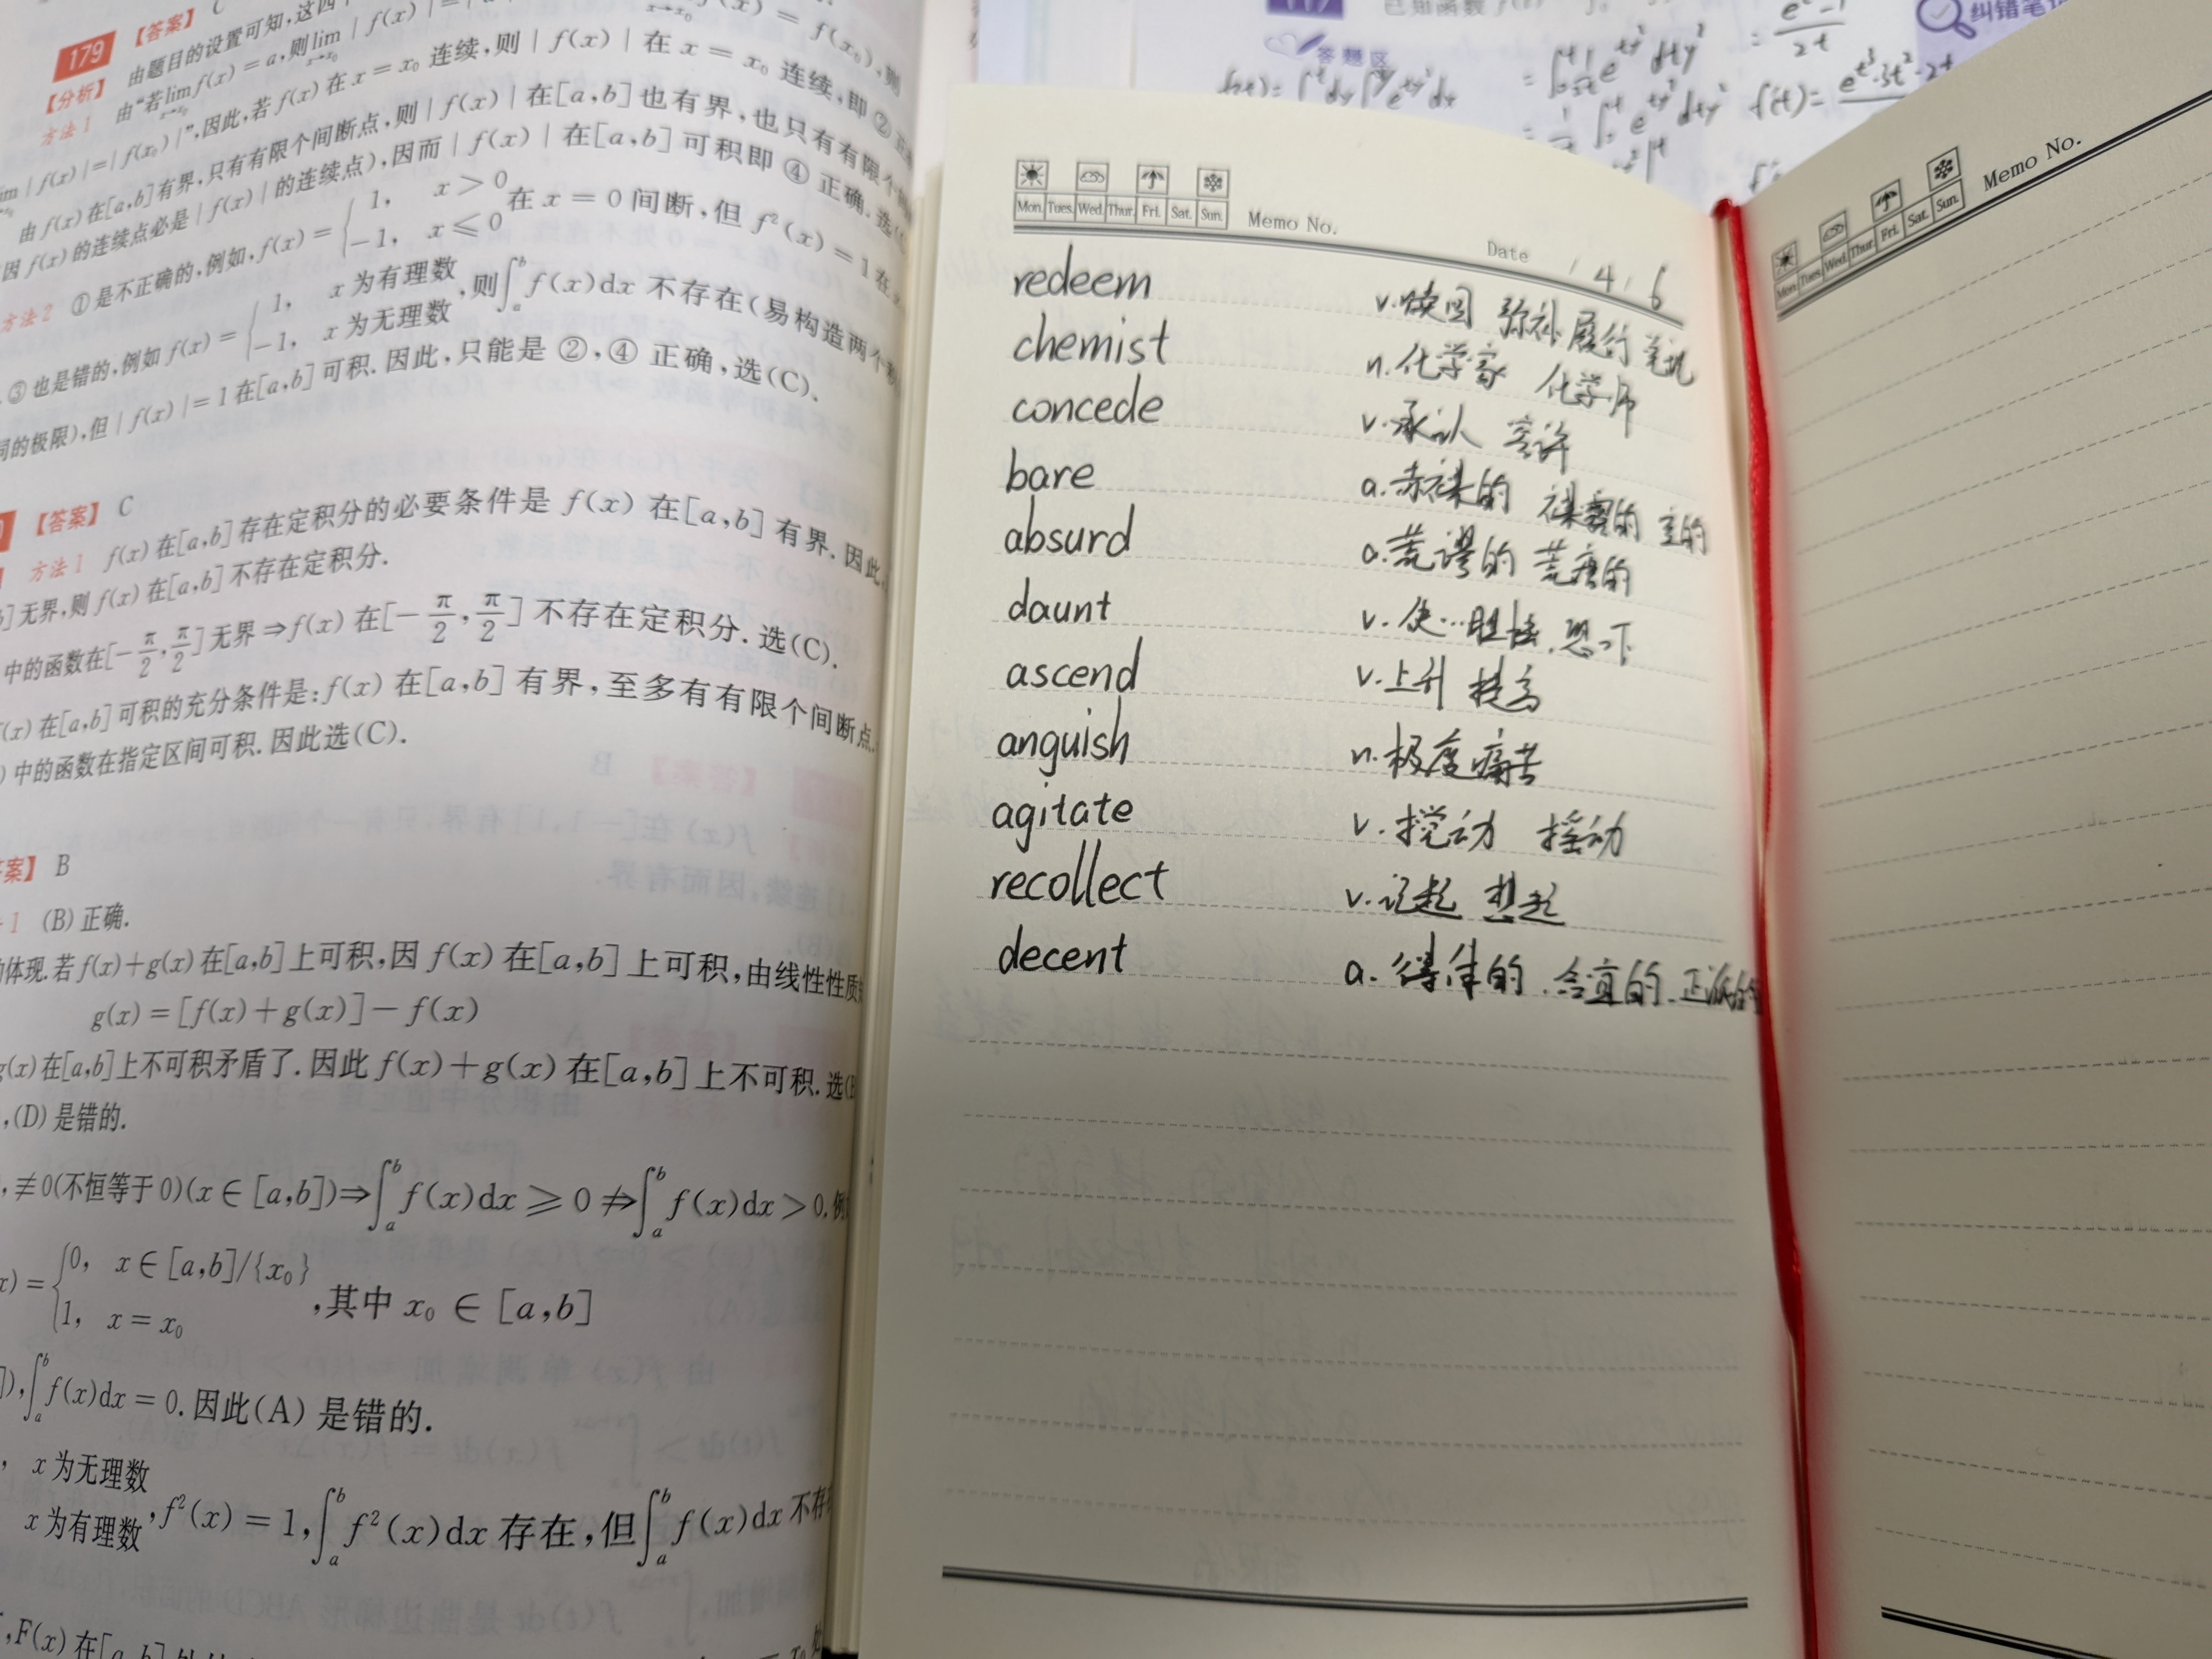 179
【答案】 C
【分析】 由题目的设置可知,这四
方法1 由“若lim f(x) = a,则lim | f(x) | = |
x→x₀
lim | f(x) | = | f(x₀) |”,因此,若 f(x) 在 x = x₀ 连续,则 | f(x) | 在 x = x₀ 连续,即 ②
由 f(x) 在[a,b]有界,只有有限个间断点,则 | f(x) | 在[a,b]也有界,也只有有限个
因 f(x) 的连续点必是 | f(x) | 的连续点),因而 | f(x) | 在[a,b] 可积即 ④ 正确.选
方法2 ①是不正确的,例如,f(x) = { 1, x > 0 -1, x ≤ 0 在 x = 0 间断,但 f²(x) = 1 在
③也是错的,例如 f(x) = { 1, x 为有理数 -1, x 为无理数 ,则∫ₐᵇ f(x)dx 不存在(易构造两个
同的极限),但 | f(x) | = 1 在[a,b] 可积. 因此,只能是 ②,④ 正确,选(C).
【答案】 C
方法1 f(x) 在[a,b] 存在定积分的必要条件是 f(x) 在[a,b] 有界. 因此,
b]无界,则 f(x) 在[a,b]不存在定积分.
中的函数在[-π/2,π/2]无界⇒f(x) 在[-π/2,π/2]不存在定积分.选(C).
f(x) 在[a,b]可积的充分条件是:f(x) 在[a,b] 有界,至多有有限个间断点.
)中的函数在指定区间可积. 因此选(C).
答案】 B
1 (B) 正确.
的体现.若 f(x)+g(x) 在[a,b]上可积,因 f(x) 在[a,b] 上可积,由线性性质
g(x) = [f(x)+g(x)] - f(x)
g(x) 在[a,b]上不可积矛盾了. 因此 f(x)+g(x) 在[a,b] 上不可积. 选(B
,(D) 是错的.
,≢0(不恒等于 0)(x ∈ [a,b])⇒∫ₐᵇ f(x)dx ≥ 0 ⇏∫ₐᵇ f(x)dx > 0. 例
x) = { 0, x ∈ [a,b]/{x₀} 1, x = x₀ ,其中 x₀ ∈ [a,b]
]),∫ₐᵇ f(x)dx = 0. 因此(A) 是错的.
, x 为无理数
x 为有理数 ,f²(x) = 1,∫ₐᵇ f²(x)dx 存在,但∫ₐᵇ f(x)dx 不存
,F(x) 在[a,b]
已知函数
纠错笔记
答题区
Mon. Tues. Wed. Thur. Fri. Sat. Sun. Memo No.
Date / 4 / 6
redeem v.赎回 弥补 履行
chemist n.化学家 化学师
concede v.承认 容许
bare a.赤裸的 裸露的 空的
absurd a.荒谬的 荒唐的
daunt v.使…胆怯.恐吓
ascend v.上升 提高
anguish n.极度痛苦
agitate v.搅动 摇动
recollect v.记起 想起
decent a.得体的.合宜的.正派的
Mon. Tues. Wed. Thur. Fri. Sat. Sun. Memo No.